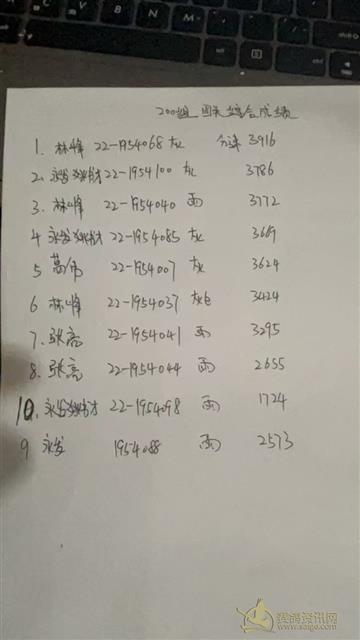 200组 四关综合成绩
1. 林峰 22-1954068 灰 分速 3916
2. 永发 22-1954100 灰 3786
3. 林峰 22-1954040 雨 3772
4 永发 22-1954085 灰 3669
5 葛伟 22-1954007 灰 3624
6 林峰 22-1954037 灰 3424
7. 张亮 22-1954041 雨 3295
8. 张亮 22-1954044 雨 2655
10. 永发 22-1954098 雨 1724
9 永发 1954088 雨 2573
赛鸽资讯网
www.saige.com